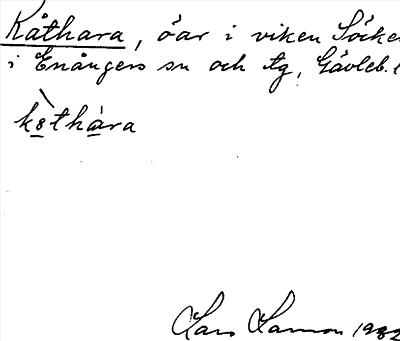 Kåthara, öar i viken Söcke
i Enångers sn och tg, Gävleb. l
kòthàra
Lars Larsson 1932